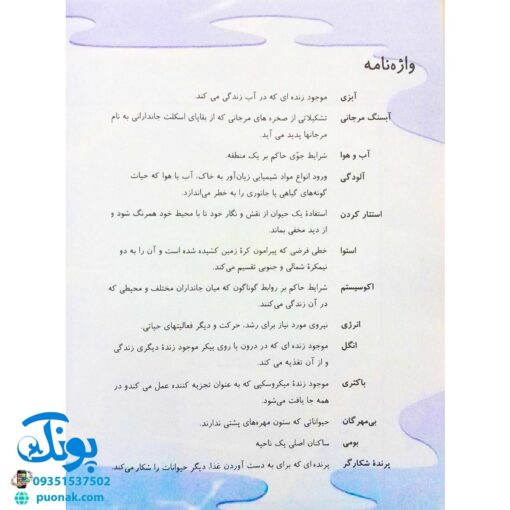 واژه‌نامه
آبزی موجود زنده ای که در آب زندگی می کند.
آبسنگ مرجانی تشکیلاتی از صخره های مرجانی که از بقایای اسکلت جاندارانی به نام
مرجانها پدید می آید.
آب و هوا شرایط جوّی حاکم بر یک منطقه.
آلودگی ورود انواع مواد شیمیایی زیان‌آور به خاک، آب یا هوا که حیات
گونه‌های گیاهی یا جانوری را به خطر می‌اندازد.
استتار کردن استفادهٔ یک حیوان از نقش و نگار خود تا با محیط خود همرنگ شود و
از دید مخفی بماند.
استوا خطی فرضی که پیرامون کرهٔ زمین کشیده شده است و آن را به دو
نیمکرهٔ شمالی و جنوبی تقسیم می‌کند.
اکوسیستم شرایط حاکم بر روابط گوناگون که میان جانداران مختلف و محیطی که
در آن زندگی می‌کنند.
انرژی نیروی مورد نیاز برای رشد، حرکت و دیگر فعالیتهای حیاتی.
انگل موجود زنده ای که در درون یا روی پیکر موجود زندهٔ دیگری زندگی
و از آن تغذیه می کند.
باکتری موجود زندهٔ میکروسکپی که به عنوان تجزیه کننده عمل می کندو در
همه جا یافت می‌شود.
بی‌مهرگان حیواناتی که ستون مهره‌های پشتی ندارند.
بومی ساکنان اصلی یک ناحیه
پرندهٔ شکارگر پرنده‌ای که برای به دست آوردن غذا، دیگر حیوانات را شکار می‌کند.
پونک
09351537502
puonak.com